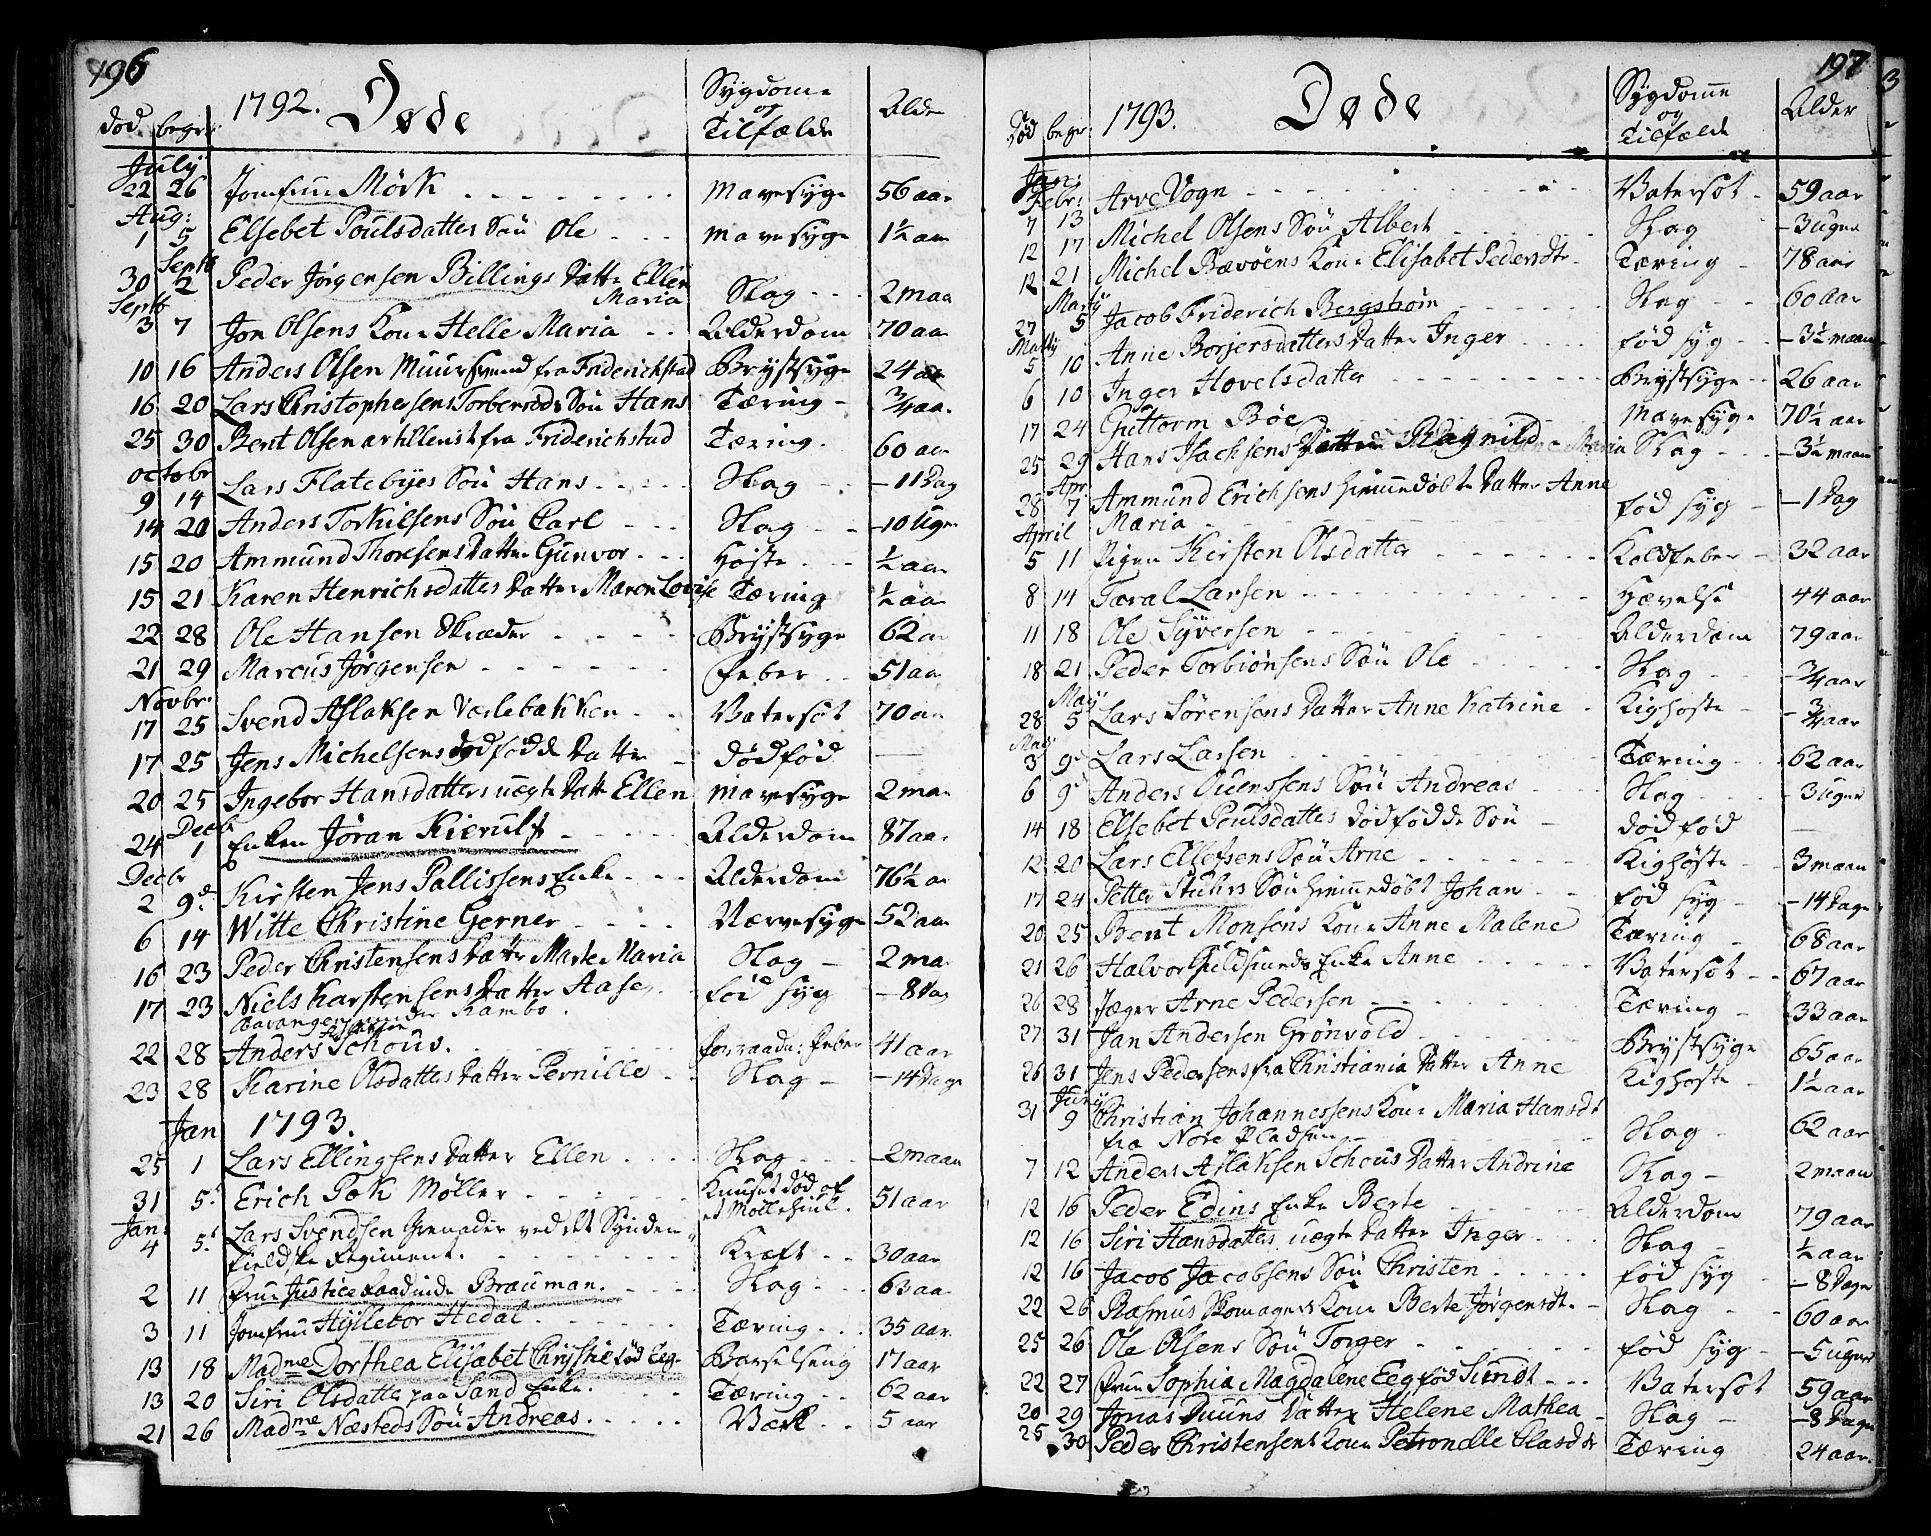 196
1792. Døde
Sygdom og Tilfælde
Alder
død begr:
July
22 26 Jomfrue Mørk mavesyge 56 aar
Aug:
1 5 Elsebet Poulsdatters Søn Ole mavesyge 1½ aar
Septb
30 2 Peder Jørgensen Billings Datter Ellen Maria Slag 2 maa
Septb
3 7 Jon Olsens Kone Helle Maria Alderdom 70 aar
10 16 Anders Olsen Muursvend fra Friderichstad Brystsyge 24 aar
16 20 Lars Christophersens Torberröds Søn Hans Tæring ¾ aar
25 30 Bent Olsen artillerist fra Friderichstad Tæring 60 aar
octobr
9 14 Lars Flatebyes Søn Hans Slag 11 Dag
14 20 Anders Torkilsens Søn Carl Slag 10 Uger
15 20 Ammund Thoresens Datter Gunvor Hoste ½ aar
15 21 Karen Henrichsdatters Datter Maren Lovise Tæring ½ aar
22 28 Ole Hansen Skræder Brystsyge 62 aar
21 29 Marcus Jørgensen Feber 51 aar
Novbr
17 25 Svend Aslaksen Værlebakken Vatersot 70 aar
17 25 Jens Michelsens dødfødde Datter dødfød
20 25 Ingebor Hansdatters uægte Datter Ellen mavesyge 2 maa
Decb
24 1 Enken Jøran Kierulf Alderdom 87 aar
Decbr
2 9d Kirsten Jens Pallissens Enke Alderdom 76½ aar
6 14 Witte Christine Gerner Nervesyge 52 aar
16 23 Peder Christensens Datter Marte Maria Slag 2 maa
17 23 Niels Karstensens Datter Aase fød syg 8 Dag
under Kambo
22 28 Anders Aslaksen Schous forraadn: Feber 41 aar
23 28 Karine Olsdatters Datter Pernille Slag 14 Dage
Jan 1793.
25 1 Lars Ellingsens Datter Ellen Slag 2 maan
31 5t Erich Pok Møller Knuset død af et Møllehiul. 51 aar
Jan:
4 5t Lars Svendsen Grenader ved det Synden
fieldske Regiment. Kræft 30 aar
2 11 Frue Justiceraadinde Brauman. Slag 63 aar
3 11 Jomfrue Hyllebor Hedal Tæring 35 aar.
13 18 Madme Dorthea Elisabet Chrystie fød Eeg Barselseng 17 aar
13 20 Siri Olsdatter paa Sand Enke. Tæring 62 aar
21 26 Madme Næsteds Søn Andreas Værk 5 aar
197
1793. Døde
Sygdomme og Tilfælde
Alder
Død begr
Jan:
Febr:
7 13 Arve Vogn Vatersot 59 aar
12 17 Michel Olsens Søn Albert Slag 3 uger
12 21 Michel Bævöens Kone Elisabet Pedersdtr Tæring 78 aar
Marty
27 5 Jacob Friderich Bergstrøm Slag 60 aar
Marty
5 10 Anne Borjersdatters Datter Inger fød syg 3½ maan
6 10 Inger Hovelsdatter Brystsyge 26 aar
17 24 Guttorm Böe mavesyge 70½ aar
25 29 Hans Isachsens Datter Ragnild Maria Slag 3½ maan
Apr
28 7 Ammund Erichsens hiemmedøbte Datter Anne
Maria fød syg 1 Dag
April
5 11 Pigen Kirsten Olsdatter Koldfeber 32 aar
8 14 Taral Larsen Hævelse 44 aar
11 18 Ole Syversen Alderdom 79 aar
18 21 Peder Torbiønsens Søn Ole Slag ¾ aar
May
28 5 Lars Sørensens Datter Anne Katrine Kighoste ¾ aar
May
3 9d Lars Larsen Tæring 62 aar
6 9d Anders Ouenssens Søn Andreas Slag 3 uger
14 18 Elsebet Poulsdatters dødfødde Søn dødfød
12 20 Lars Ellefsens Søn Arne Kighøste 3 maan
17 24 Petter Stuhrs Søn hiemmedøbt Johan fød syg 14 Dage
20 25 Bent Monsens Kone Anne Malene Tæring 68 aar
21 26 Halvor Guldsmeds Enke Anne Vatersot 67 aar
26 28 Jæger Arne Pedersen Tæring 33 aar
27 31 Jan Andersen Grönvold Brystsyge 65 aar
26 31 Jens Pedersens fra Christiania Datter Anne Kighoste 1½ aar
Juny
31 9 Christian Johannessens Kone Maria Hansdt
fra Nore Pladsen Slag 62 aar
7 12 Anders Aslaksen Schous Datter Andrine Slag 2 maan
12 16 Peder Edins Enke Berte Alderdom 79 aar
12 16 Siri Hansdatters uægte Datter Inger Slag ½ aar
12 16 Jacob Jacobsens Søn Christen fød syg 8 Dage
22 26 Rasmus Skomagers Kone Berte Jørgensdt. Slag 60 aar
25 26 Ole Olsens Søn Torger fød syg 5 uger
22 27 Frue Sophia Magdalene Eeg fød Sundt Vatersot 59 aar
20 29 Jonas Duuns Datter Helene Mathea Slag 8 Dage
25 30 Peder Christensens Kone Petronelle Clasdtr Tæring 24 aar.